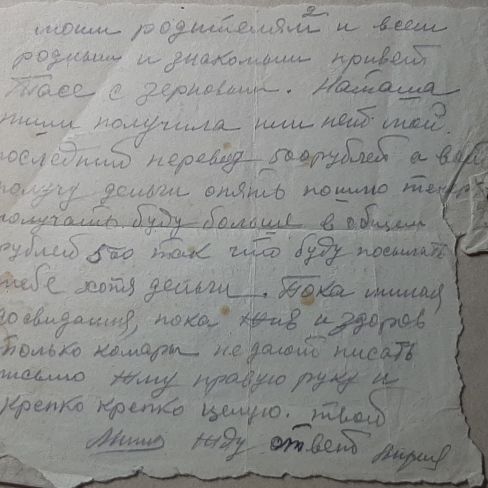 2
моим родителям и всем
родным и знакомым привет
Тасе с зерновым. Наташа
пиши получила или нет мой
последний перевод 500 рублей а вот
получу деньги опять пошлю тепер
получать буду больше в общем
рублей 500 так что буду посылать
тебе хотя деньги. Пока милая
досвидания, пока жив и здоров
только комары не дают писать
письмо жму правую руку и
крепко крепко целую. твой
Миша жду ответ